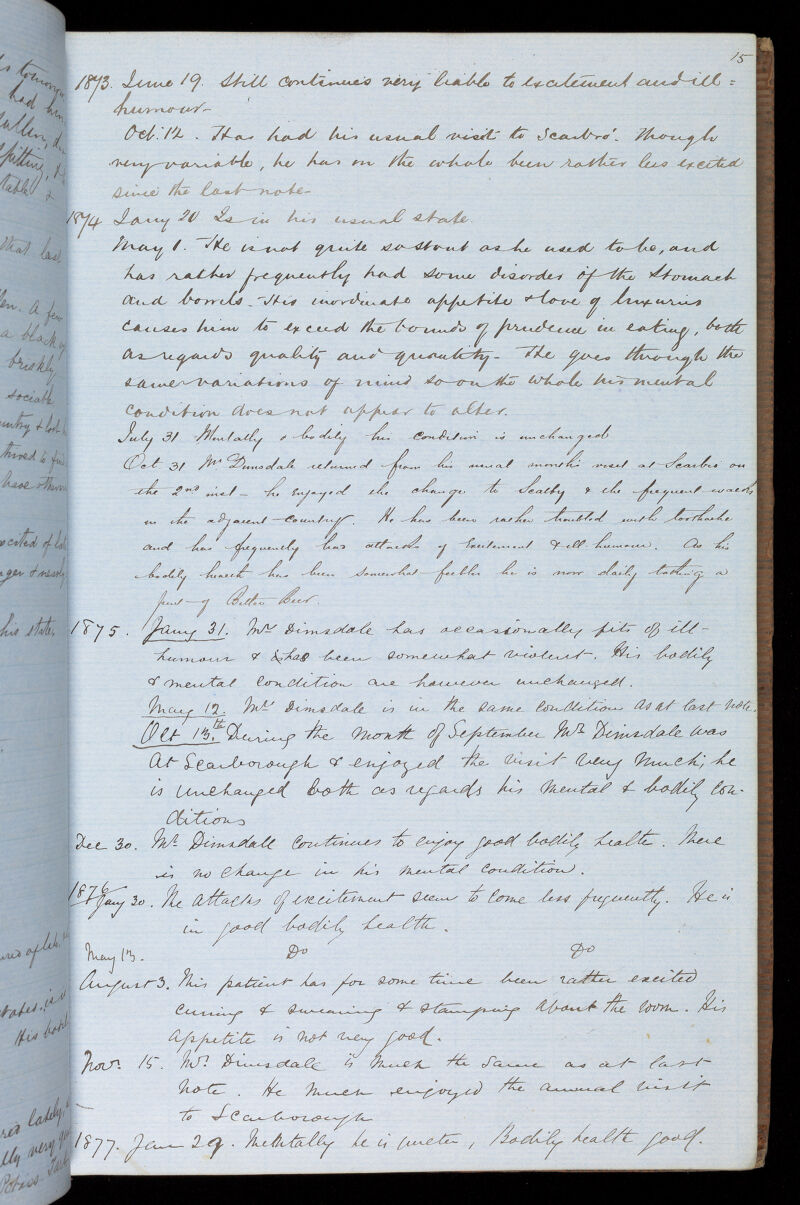 15
1873. June 19. Still continues very liable to excitement and ill=
humour-
Oct. 12. Has had his usual visit to Scarbro'. Though
very variable, he has on the whole been rather less excited
since the last note-
1874 Jany 20 Is in his usual state.
May 1. He is not quite so stout as he used to be, and
has rather frequently had some disorder of the Stomach
and bowels. His inordinate appetite & love of luxuries
causes him to exceed the bounds of prudence in eating, both
as regards quality and quantity- He goes through the
same variations of mind so on the whole his mental
condition does not appear to alter.
July 31 Mentally & bodily his condition is unchanged
Oct 31 Mr Dimsdale returned from his usual months visit at Scarbro on
the 2nd inst- he enjoyed the change to Scalby & the frequent walks
in the adjacent country. He has been rather troubled with toothache
and has frequently had attacks of Excitement & ill humour. As his
bodily health has been somewhat feebler he is now daily taking a
pint of Bitter Beer.
1875. Jany 31. Mr Dimsdale has occasionally fits of ill-
humour & has been somewhat violent. His bodily
& mental condition are however unchanged.
May 12. Mr Dimsdale is in the same condition as at last note.
Oct 13th. During the month of September Mr Dimsdale was
at Scarborough & enjoyed the visit very much; he
is unchanged both as regards his mental & bodily con-
ditions
Dec 30. Mr Dimsdale continues to enjoy good bodily health. There
is no change in his mental condition.
1876
Jany 30. The attacks of excitement seem to come less frequently. He is
in good bodily health.
May 13. Do Do
August 3. This patient has for some time been rather excited
cursing & swearing & stamping about the room. His
appetite is not very good.
Novr. 15. Mr. Dimsdale is much the same as at last
note. He much enjoyed the annual visit
to Scarborough
1877. Jan 29. Mentally he is quieter, Bodily health good.